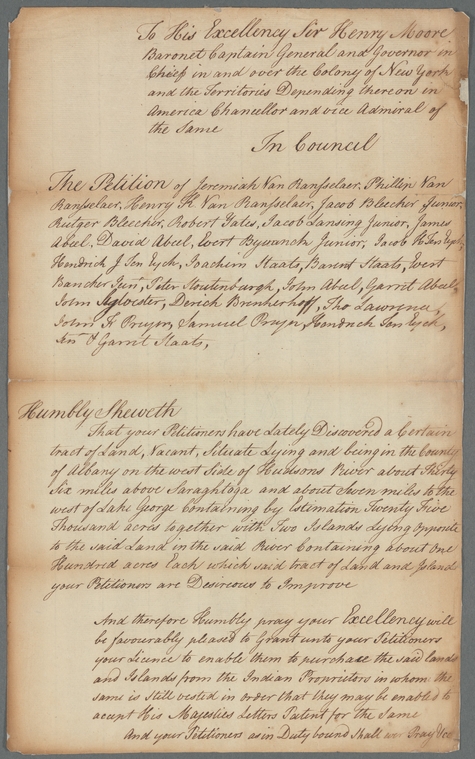 To His Excellency Sir Henry Moore
Baronet Captain General and Governor in
Chief in and over the Colony of New York
and the Territories Depending thereon in
America Chancellor and vice Admiral of
the Same
In Council
The Petition of Jeremiah Van Ranfselaer, Phillip Van
Ranfselaer, Henry K Van Ranfselaer, Jacob Bleecher Junior,
Rutger Bleecher, Robert Yates, Jacob Lansing Junior, James
Abeel, David Abeel, Evert Bywanck Junior, Jacob H Ten Eyck,
Hendrick J Ten Eyck, Joachim Staats, Barent Staats, Evert
Bancker Jun, Peter Stoutenburgh, John Abeel, Garrit Abeel,
John Sylvester, Derick Brinkerhoff, Tho Lawrence,
John H Pruyn, Samuel Pruyn, Hendrick Ten Eyck,
Jun & Garrit Staats,
Humbly Sheweth
That your Petitioners have Lately Discovered a Certain
tract of Land, Vacant, Situate Lying and being in the County
of Albany on the west Side of Hudsons River about Thirty
Six miles above Saraghtoga and about Seven miles to the
west of Lake George Containing by Estimation Twenty Five
Thousand acres together with Two Islands Lying opposite
to the said Land in the said River Containing about One
Hundred acres Each which said tract of Land and Island
your Petitioners are Desireous to Improve
And therefore Humbly pray your Excellency will
be favourably pleased to Grant unto your Petitioners
your Licence to enable them to purchase the said lands
and Islands from the Indian Proprietors in whom the
same is still vested in order that they may be enabled to
accept His Majesties Letters Patent for the same
And your Petitioners as in Duty bound Shall ever Pray &ca